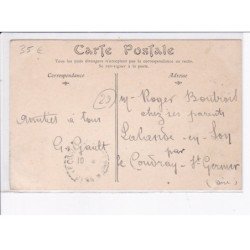 35 €
Carte Postale
Tous les pays étrangers n'acceptent pas la correspondance au recto.
Se renseigner à la poste.
Correspondance
Adresse
M. Roger
chez ses parents
Lalande en Son
par
le Coudray St Germer
amitiés à tous
G. Gault